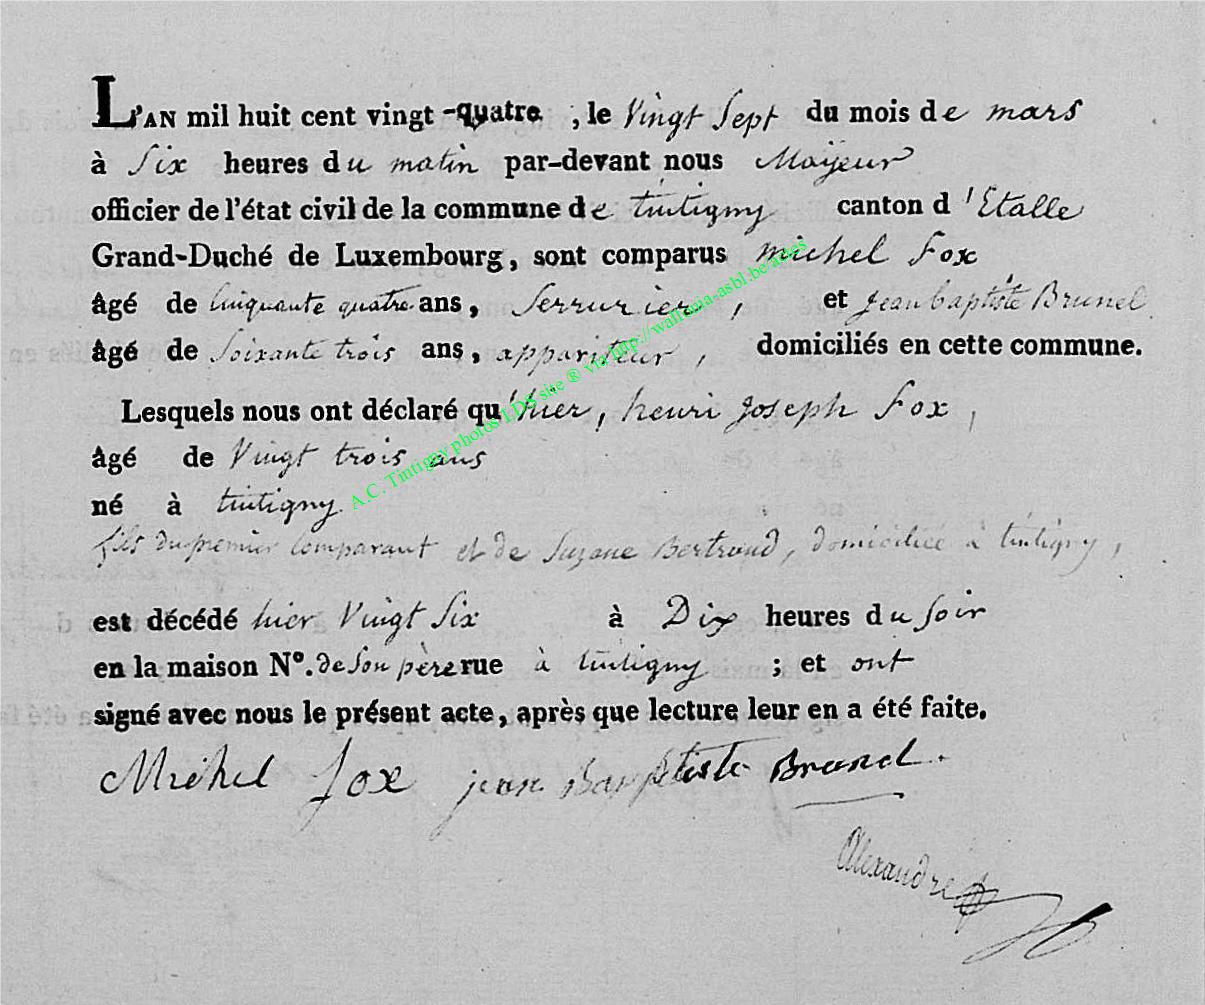 L'AN mil huit cent vingt-quatre, le Vingt Sept du mois de mars
à Six heures du matin par-devant nous Maÿeur
officier de l'état civil de la commune de tintigny canton d'Etalle
Grand-Duché de Luxembourg, sont comparus michel Fox
âgé de Cinquante quatre ans, Serrurier, et jean baptiste Brunel
âgé de Soixante trois ans, appariteur, domiciliés en cette commune.
Lesquels nous ont déclaré qu'hier, henri joseph Fox,
âgé de Vingt trois ans
né à tintigny
fils du premier Comparant et de Suzane Bertrand, domiciliée à tintigny,
est décédé hier Vingt Six à Dix heures du Soir
en la maison N°. de Son père rue à tintigny ; et ont
signé avec nous le présent acte, après que lecture leur en a été faite.
Michel fox jean Baptiste Brunel.
Alexandre
A.C. Tintigny photos LDS site ® via http://wallonia-asbl.be/actes